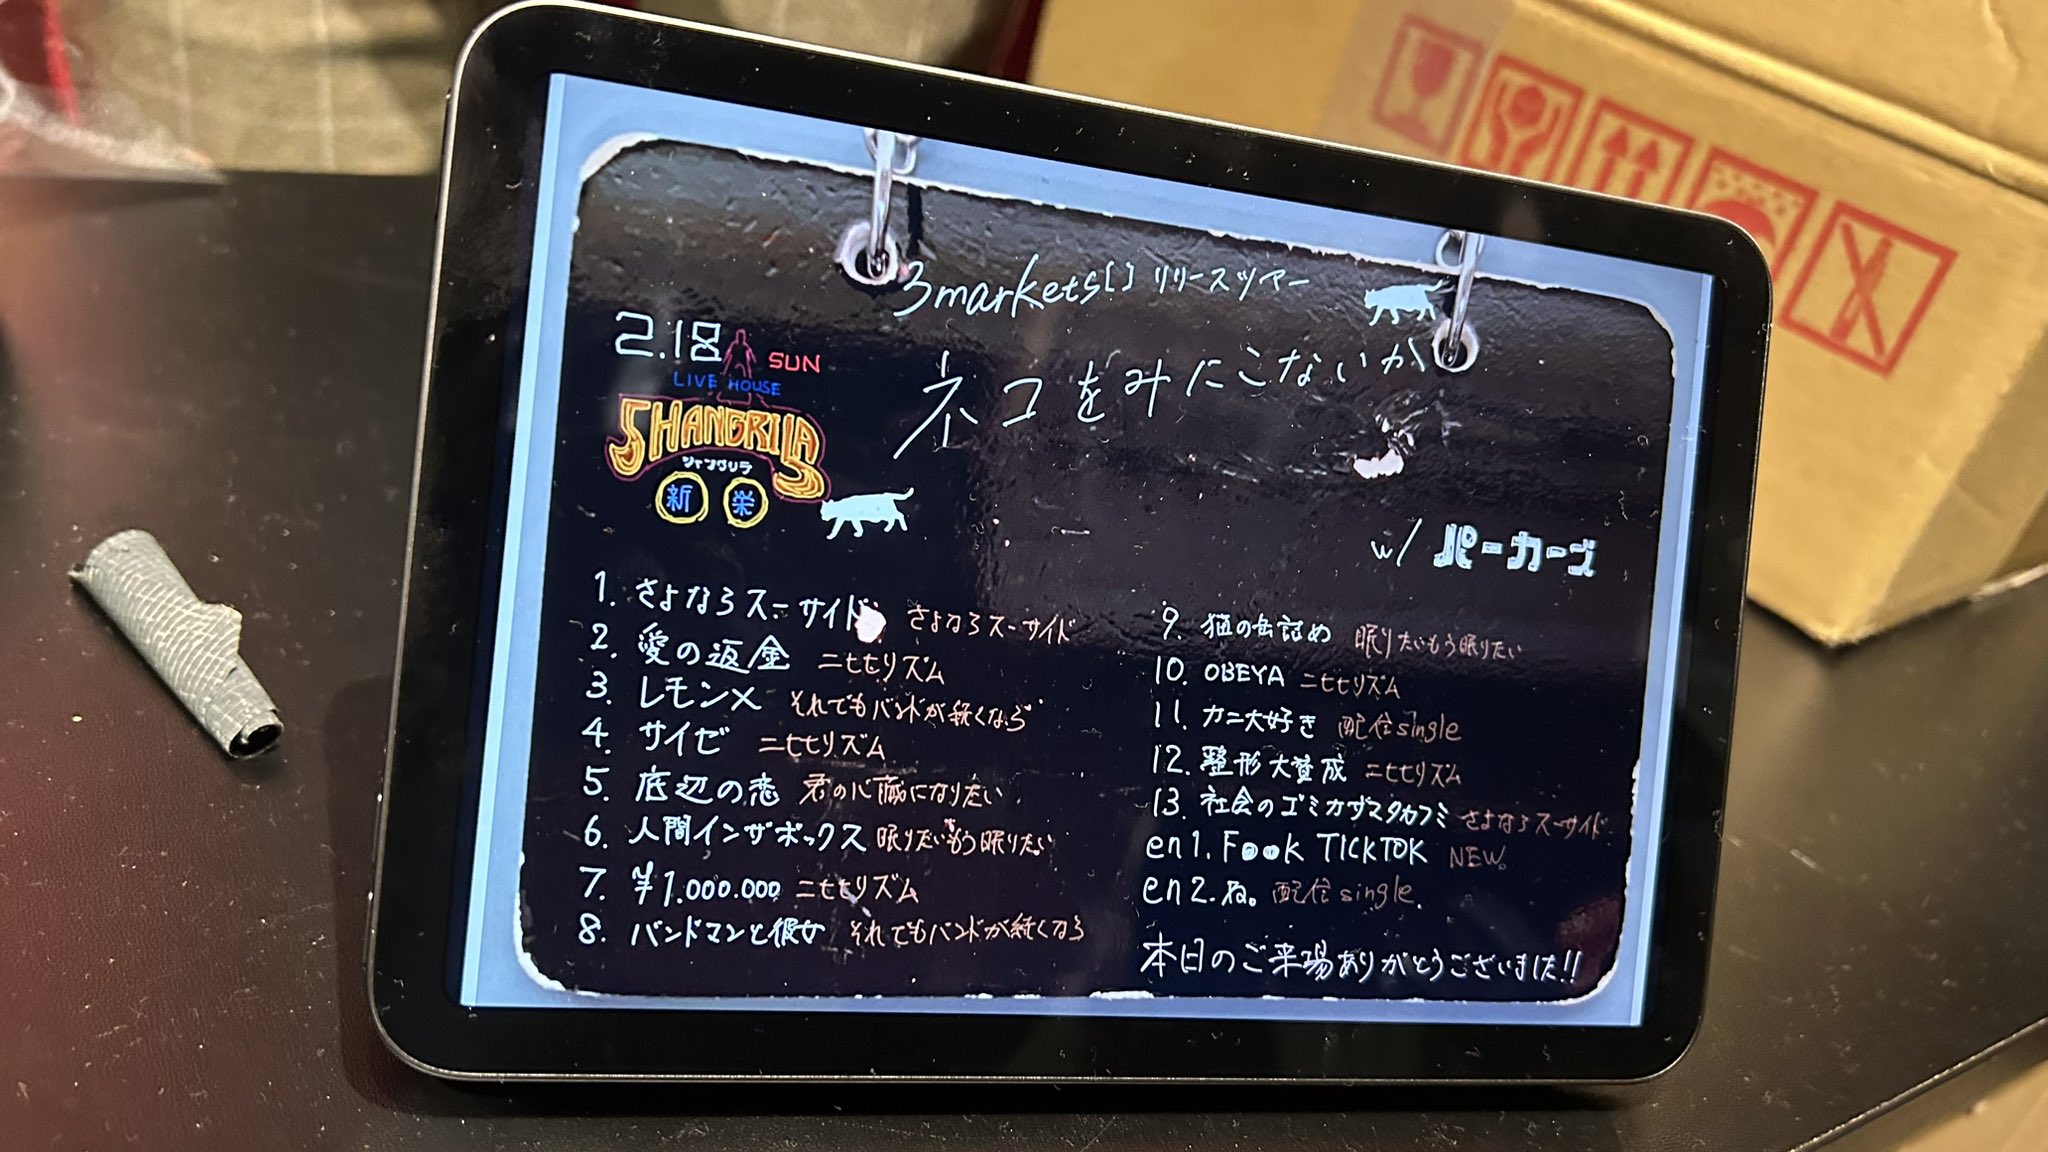 3markets[] リリースツアー
ネコをみにこないか
2.18 SUN
LIVE HOUSE
SHANGRILA
シャングリラ
新 栄
w/ パーカーズ
1. さよならスーサイド さよならスーサイド
2. 愛の返金 ニヒヒリズム
3. レモン× それでもバンドが続くなら
4. サイゼ ニヒヒリズム
5. 底辺の恋 君の心臓になりたい
6. 人間インザボックス 眠りたいもう眠りたい
7. ¥1.000.000 ニヒヒリズム
8. バンドマンと彼女 それでもバンドが続くなら
9. 猫の缶詰め 眠りたいもう眠りたい
10. OBEYA ニヒヒリズム
11. カニ大好き 配信single
12. 整形大賛成 ニヒヒリズム
13. 社会のゴミカザマタカフミ さよならスーサイド
en1. F●●k TICKTOK NEW.
en2. ね。 配信single.
本日のご来場ありがとうございました!!